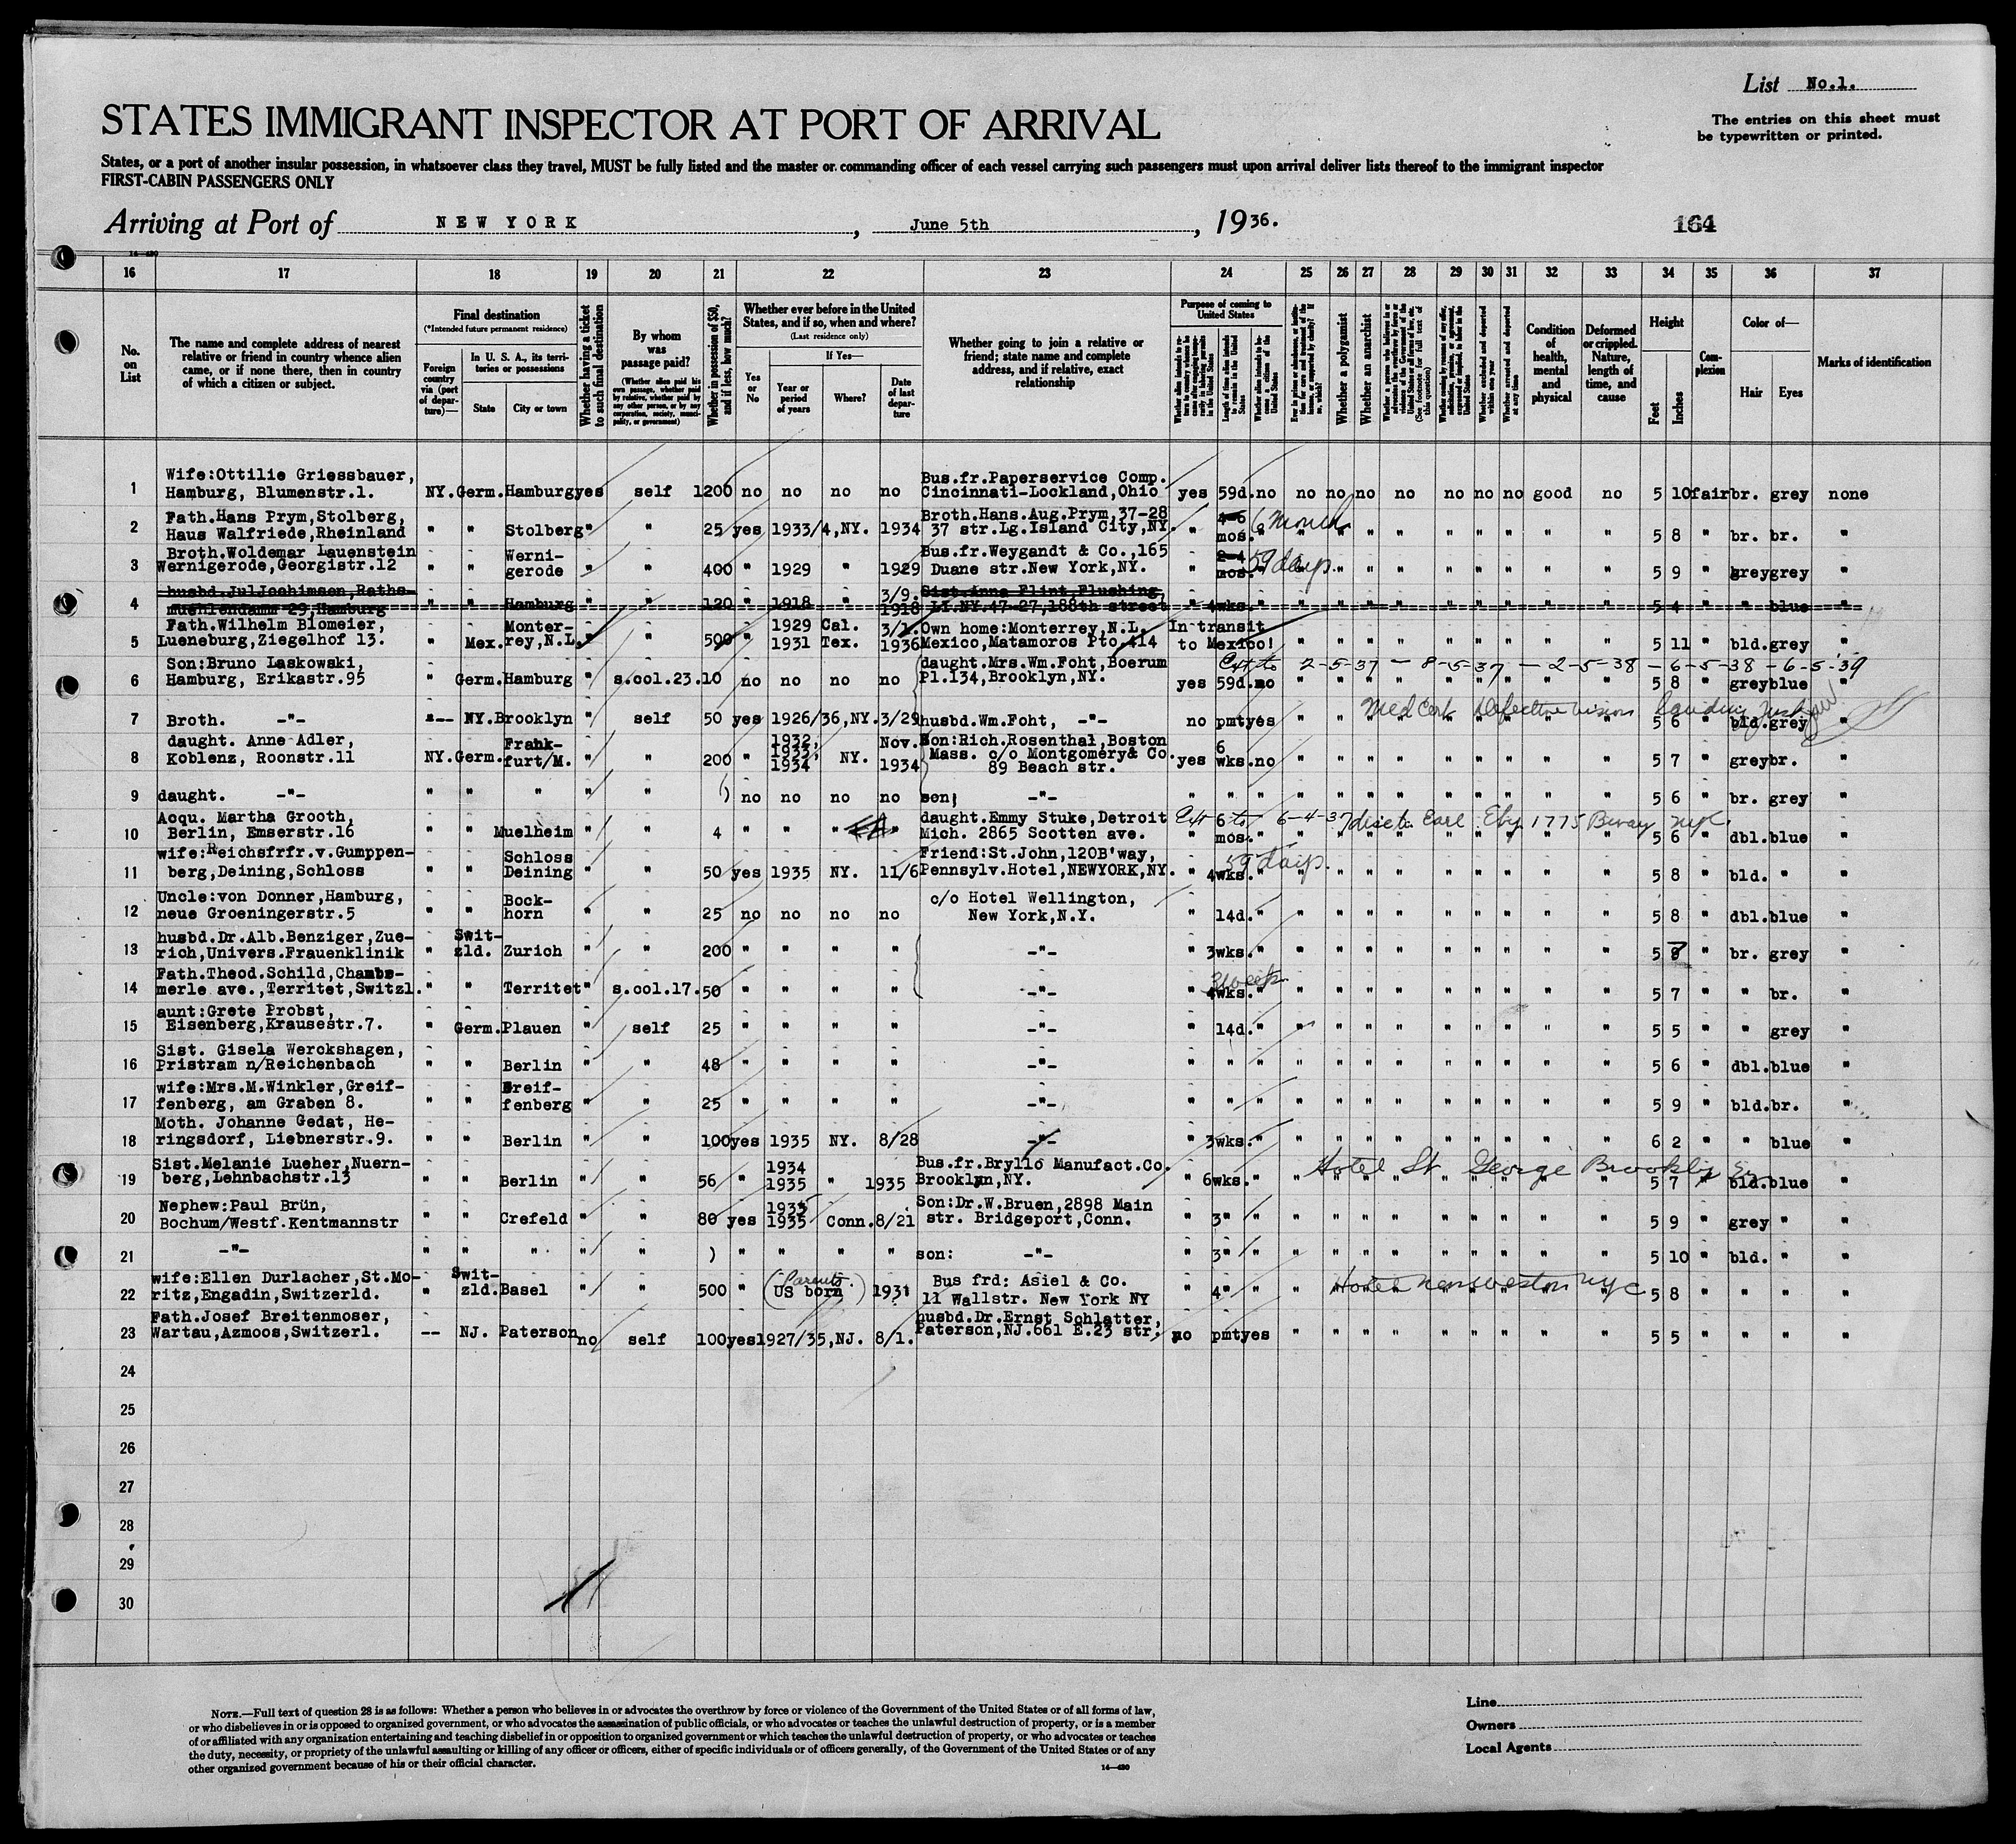 List No.1.
The entries on this sheet must
be typewritten or printed.
STATES IMMIGRANT INSPECTOR AT PORT OF ARRIVAL
States, or a port of another insular possession, in whatsoever class they travel, MUST be fully listed and the master or commanding officer of each vessel carrying such passengers must upon arrival deliver lists thereof to the immigrant inspector
FIRST-CABIN PASSENGERS ONLY
Arriving at Port of NEW YORK, June 5th, 1936.
164
16 17 18 19 20 21 22 23 24 25 26 27 28 29 30 31 32 33 34 35 36 37
No. on List
The name and complete address of nearest relative or friend in country whence alien came, or if none there, then in country of which a citizen or subject.
Final destination
(*Intended future permanent residence)
Foreign country via (port of departure)—
In U. S. A., its territories or possessions
State
City or town
Whether having a ticket to such final destination
By whom was passage paid?
(Whether alien paid his own passage, whether paid by relative, whether paid by any other person, or by any corporation, society, municipality, or government)
Whether in possession of $50, and if less, how much?
Whether ever before in the United States, and if so, when and where?
(Last residence only)
Yes or No
If Yes—
Year or period of years
Where?
Date of last departure
Whether going to join a relative or friend; state name and complete address, and if relative, exact relationship
Purpose of coming to United States
Length of time alien intends to remain in the United States
Whether a polygamist
Whether an anarchist
(See footnote for full text of this question)
Whether excluded and deported within one year
Whether arrested and deported at any time
Condition of health, mental and physical
Deformed or crippled. Nature, length of time, and cause
Height
Feet
Inches
Complexion
Color of—
Hair
Eyes
Marks of identification
1 Wife:Ottilie Griessbauer, Hamburg, Blumenstr.1. NY. Germ. Hamburg yes self 1200 no no no no Bus.fr.Paperservice Comp. Cincinnati-Lockland,Ohio yes 59d. no no no no no no no no good no 5 10 fair br. grey none
2 Fath.Hans Prym,Stolberg, Haus Walfriede,Rheinland " " Stolberg " " 25 yes 1933/4,NY. 1934 Broth.Hans.Aug.Prym,37-28 37 str.Lg.Island City,NY. " 4-6 mos. 6 Months " " " " " " " " " " 5 8 " br. br. "
3 Broth.Woldemar Lauenstein Wernigerode,Georgistr.12 " " Wernigerode " " 400 " 1929 " 1929 Bus.fr.Weygandt & Co.,165 Duane str.New York,NY. " 2-4 mos. 59 days " " " " " " " " " " 5 9 " grey grey "
4 husbd.Jul Jochimsen,Rathsmuehlendamm 29,Hamburg " " Hamburg " " 120 " 1918 " 3/9. 1918 Sist.Anna Flint Flushing, LI.NY.47-27,188th street " 4wks. " 5 4 " " blue "
5 Fath.Wilhelm Blomeier, Lueneburg,Ziegelhof 13. " Mex. Monterrey,N.L. " 500 " 1929 Cal. 1931 Tex. 3/1. 1936 Own home:Monterrey,N.L. Mexico,Matamoros Pto 414 In transit to Mexico! " " " " " " " " " 5 11 " bld. grey "
6 Son:Bruno Laskowski, Hamburg, Erikastr.95 " Germ. Hamburg " s.col.23. 10 no no no no daught.Mrs.Wm.Foht, Boerum Pl.134,Brooklyn,NY. yes 59d. no " " " " " " " " " 5 8 " grey blue "
Ext to 2-5-37 - 8-5-37 - 2-5-38 - 6-5-38 - 6-5-39
7 Broth. -"- --- NY. Brooklyn " self 50 yes 1926/36,NY. 3/29 husbd.Wm.Foht, -"- no pmt yes " " 5 6 " bld. grey "
Med Cert Defective vision
8 daught. Anne Adler, Koblenz, Roonstr.11 NY. Germ. Frankfurt/M. " " 200 " 1932, 1933, 1934 NY. Nov. 1934 Son:Rich.Rosenthal,Boston Mass. c/o Montgomery& Co. 89 Beach str. yes 6 wks. no " " " " " " " " " 5 7 " grey br. "
9 daught. -"- " " " " " ) no no no no son; -"- " " " " " " " " " " " " 5 6 " br. grey "
10 Acqu. Martha Grooth, Berlin, Emserstr.16 " " Muelheim " " 4 " " " " daught.Emmy Stuke,Detroit Mich. 2865 Scotten ave. 6 mos. " 5 6 " dbl. blue "
Ext to 6-4-37 Earl Eby 1775 Bway NYC
11 wife:Reichsfrfr.v.Gumppenberg,Deining,Schloss " " Schloss Deining " " 50 yes 1935 NY. 11/6 Friend:St.John,120B'way, Pennsylv.Hotel,NEWYORK,NY. " 4wks. 59 days. " " " " " " " " " " 5 8 " bld. " "
12 Uncle:von Donner,Hamburg, neue Groeningerstr.5 " " Bockhorn " " 25 no no no no c/o Hotel Wellington, New York,N.Y. " 14d. " " " " " " " " " " 5 8 " dbl. blue "
13 husbd.Dr.Alb.Benziger,Zuerich,Univers.Frauenklinik " Switzld. Zurich " " 200 " " " " -"- " 3wks. " " " " " " " " " " 5 7 " br. grey "
14 Fath.Theod.Schild,Chambemerle ave.,Territet,Switzl. " " Territet " s.col.17. 50 " " " " -"- " 4wks. 3 weeks " " " " " " " " " " 5 7 " " br. "
15 aunt:Grete Probst, Eisenberg,Krausestr.7. " Germ. Plauen " self 25 " " " " -"- " 14d. " " " " " " " " " " 5 5 " " grey "
16 Sist. Gisela Werckshagen, Pristram n/Reichenbach " " Berlin " " 48 " " " " -"- " " " " " " " " " " " " 5 6 " dbl. blue "
17 wife:Mrs.M.Winkler,Greiffenberg, am Graben 8. " " Greiffenberg " " 25 " " " " -"- " " " " " " " " " " " " 5 9 " bld. br. "
18 Moth. Johanne Gedat, Heringsdorf, Liebnerstr.9. " " Berlin " " 100 yes 1935 NY. 8/28 -"- " 3wks. " " " " " " " " " " 6 2 " " blue "
19 Sist.Melanie Lueher,Nuernberg,Lehnbachstr.13 " " Berlin " " 56 " 1934 1935 " 1935 Bus.fr.Bryllo Manufact.Co. Brooklyn,NY. " 6wks. " " 5 7 " bld. blue "
Hotel St. George Brooklyn
20 Nephew:Paul Brün, Bochum/Westf.Kentmannstr " " Crefeld " " 80 yes 1933 1935 Conn. 8/21 Son:Dr.W.Bruen,2898 Main str. Bridgeport,Conn. " 3" " " " " " " " " " " 5 9 " grey " "
21 -"- " " " " " ) " " " " son: -"- " 3" " " " " " " " " " " 5 10 " bld. " "
22 wife:Ellen Durlacher,St.Moritz,Engadin,Switzerld. " Switzld. Basel " " 500 " (Parents US born) 1931 Bus frd: Asiel & Co. 11 Wallstr. New York NY " 4" " " 5 8 " " " "
Hotel NYC
23 Fath.Josef Breitenmoser, Wartau,Azmoos,Switzerl. -- NJ. Paterson no self 100 yes 1927/35,NJ. 8/1. husbd.Dr.Ernst Schlatter, Paterson,NJ.661 E.23 str. no pmt yes " " " " " " " " " 5 5 " " " "
24
25
26
27
28
29
30
NOTE.—Full text of question 28 is as follows: Whether a person who believes in or advocates the overthrow by force or violence of the Government of the United States or of all forms of law,
or who disbelieves in or is opposed to organized government, or who advocates the assassination of public officials, or who advocates or teaches the unlawful destruction of property, or is a member
of or affiliated with any organization entertaining and teaching disbelief in or opposition to organized government or which teaches the unlawful destruction of property, or who advocates or teaches
the duty, necessity, or propriety of the unlawful assaulting or killing of any officer or officers, either of specific individuals or of officers generally, of the Government of the United States or of any
other organized government because of his or their official character.
14—430
Line
Owners
Local Agents